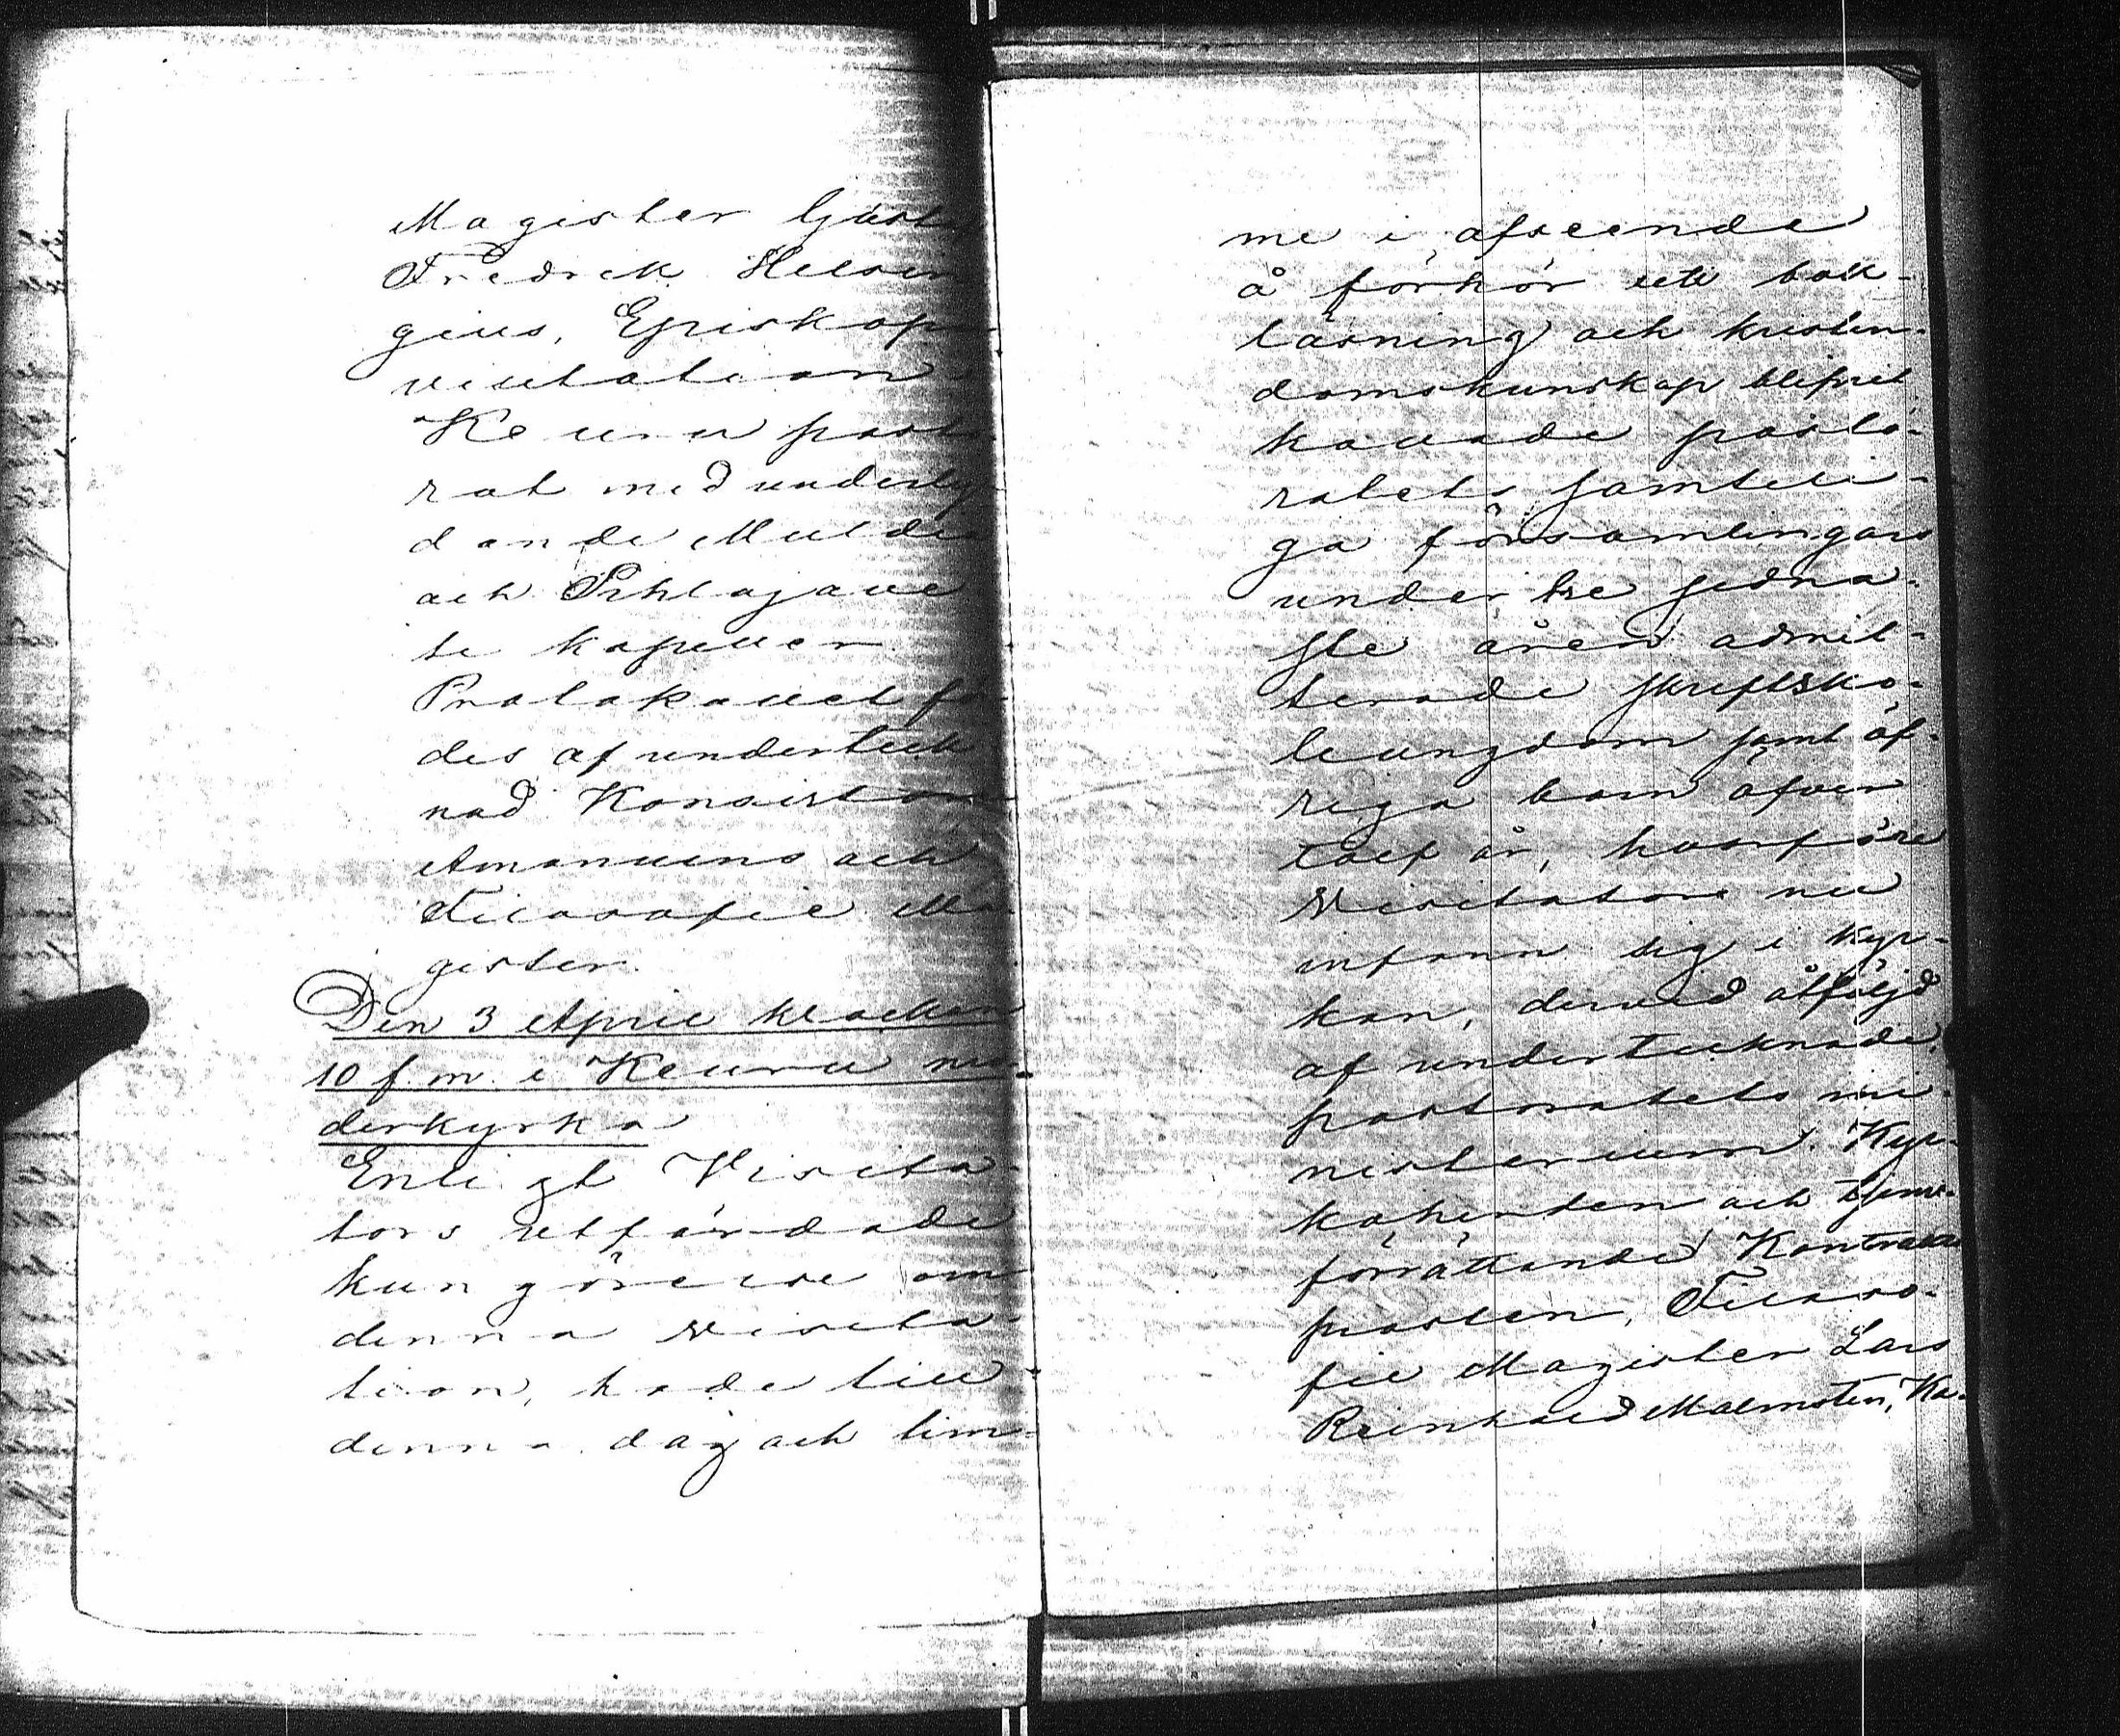 Magister Gust
Fredrik Helsin
gius, Episkops
visitation
Keuru pasto
rat med underly
dande Multia
och Pihlajave
si kapeller
Protokollet för
des af underteck
nad Konsistorii
Amanuens och
Filosofie Ma
gister.
Den 3 April klockan
10 f. m. i Keuru mo
derkyrka
Enligt Visita-
tors utfärdade
kungörelse om
denna visita-
tion, hade till
denna dag och tim-
me i afseende
å förhör uti bok-
läsning och kristen-
domskunskap blifvit
kallade pasto-
ratets samteli-
ga församlingars
under tre sedna-
ste åren admit-
terade skriftsko-
leungdom samt öf-
riga barn öfver
tolf år, hvarföre
Visitator nu
infann sig i kyr-
kan, dervid åtföljd
af undertecknade,
pastoratets mi-
nisterium. Kyr-
koherden och tjenst-
förrättande Kontrakts
prosten, Filoso-
fie Magister Lars
Reinhold Malmsten, Ka-